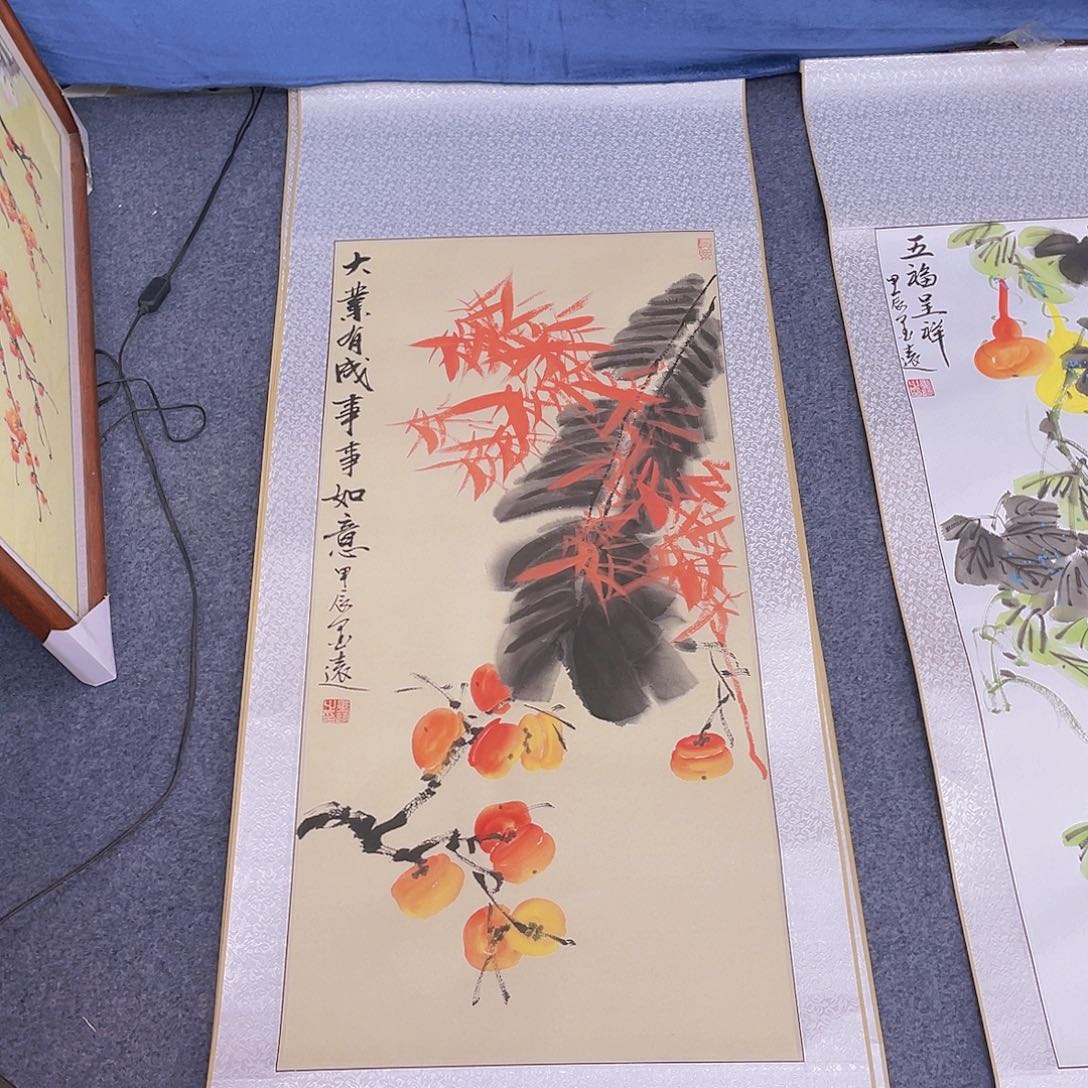 大業有成事事如意
甲辰墨遠
五福呈祥
甲辰墨遠